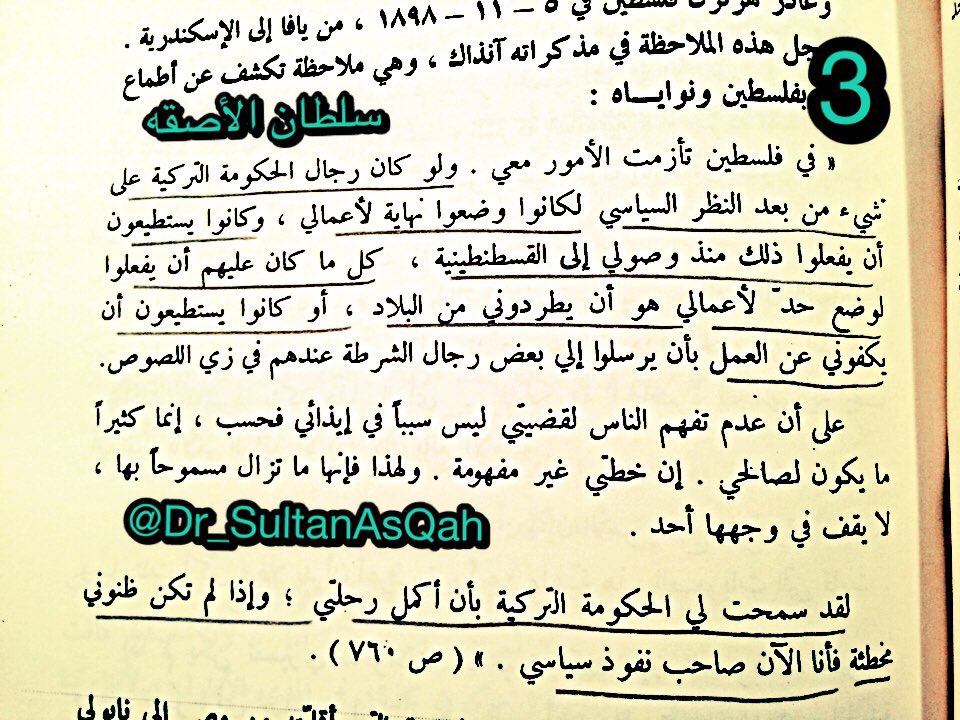 وغادر هرتزل فلسطين في ٥ – ١١ – ١٨٩٨ ، من يافا إلى الإسكندرية .
جل هذه الملاحظة في مذكراته آنذاك ، وهي ملاحظة تكشف عن أطماع
3
بفلسطين ونوايـاه :
سلطان الأصقه
« في فلسطين تأزمت الأمور معي . ولو كان رجال الحكومة التركية على
شيء من بعد النظر السياسي لكانوا وضعوا نهاية لأعمالي ، وكانوا يستطيعون
أن يفعلوا ذلك منذ وصولي إلى القسطنطينية ، كل ما كان عليهم أن يفعلوا
لوضع حدّ لأعمالي هو أن يطردوني من البلاد ، أو كانوا يستطيعون أن
يكفوني عن العمل بأن يرسلوا إلي بعض رجال الشرطة عندهم في زي اللصوص.
على أن عدم تفهم الناس لقضيّتي ليس سبباً في إيذائي فحسب ، إنما كثيراً
ما يكون لصالحي . إن خطتي غير مفهومة . ولهذا فإنها ما تزال مسموحاً بها ،
لا يقف في وجهها أحد .
@Dr_SultanAsQah
لقد سمحت لي الحكومة التركية بأن أكمل رحلتي ؛ وإذا لم تكن ظنوني
مخطئة فأنا الآن صاحب نفوذ سياسي . » ( ص ٧٦٠ ) .
إلى نابولي